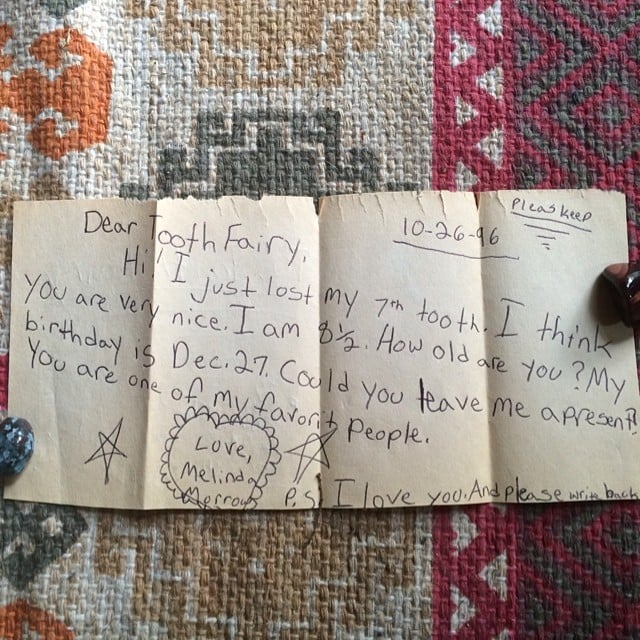 Pleas keep
10-26-96
Dear Tooth Fairy,
Hi! I just lost my 7th tooth. I think
You are very nice. I am 8 1/2. How old are you? My
birthday is Dec. 27. Could you leave me a present?!
You are one of my favorit People.
Love,
Melinda
Merrow
P.S I love you. And please write back